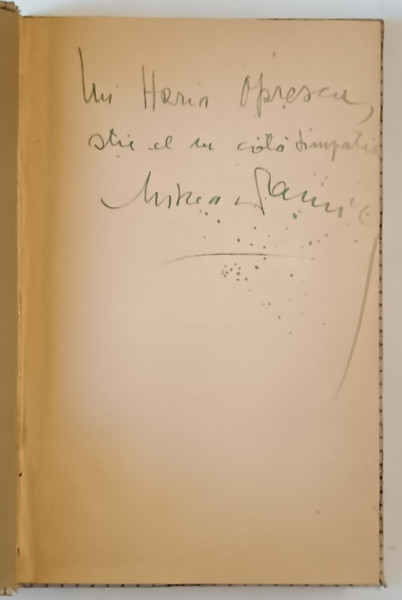 Lui Horia Oprescu,
știe el cu câtă simpatie
Mircea